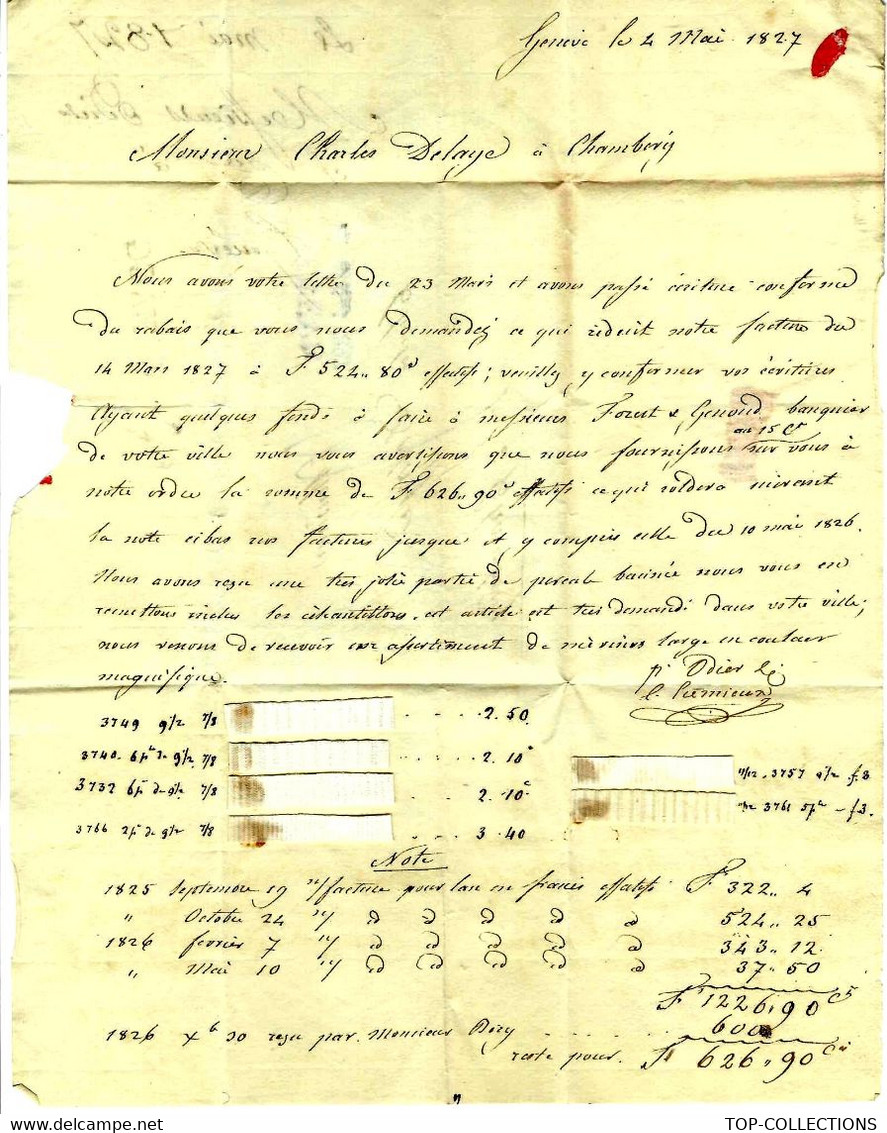 Genève le 4 Mai 1827
Monsieur Charles Delaye à Chambéry
Nous avons votre lettre du 23 Mars et avons passé écriture conforme
du rabais que vous nous demandez ce qui réduit notre facture du
14 Mars 1827 à F 524,, 80 effectifs; veuillez y conformer vos écritures
Ayant quelques fonds à faire à messieurs Forest & Genoud banquier
au 15 Ct
de votre ville nous vous avertissons que nous fournissons sur vous à
notre ordre la somme de F 626,, 90 effectifs ce qui soldera suivant
la note cibas nos factures jusque et y compris celle du 10 mai 1826.
Nous avons reçu une très jolie partie de percale bacinée nous vous en
remettons inclus les échantillons, cet article est très demandé dans votre ville;
nous venons de recevoir un assortiment de mérinos large en couleur
magnifique.
p. Odier &
C. Cumieux
3749 9/2 7/8 . . . . 2.50
3740 6 p de 9/2 7/8 . . . . 2.10
3732 6 p de 9/2 7/8 . . . . 2.10
3766 2 p de 9/2 7/8 . . . . 3.40
11/12 . 3757 9/2 f. 3
3761 5 p - f3.
Note
1825 Septembre 19 n/facture pour lan en francs effectifs F 322,, 4
" Octobre 24 n/ d d d d d 524,, 25
1826 février 7 n/ d d d d d 343,, 12
" Mai 10 n/ d d d d d 37,, 50
F 1226,, 90 Cs
1826 Xb 30 reçu par Monsieur Dézy 600
reste pour. F 626,, 90 Cs
TOP-COLLECTIONS